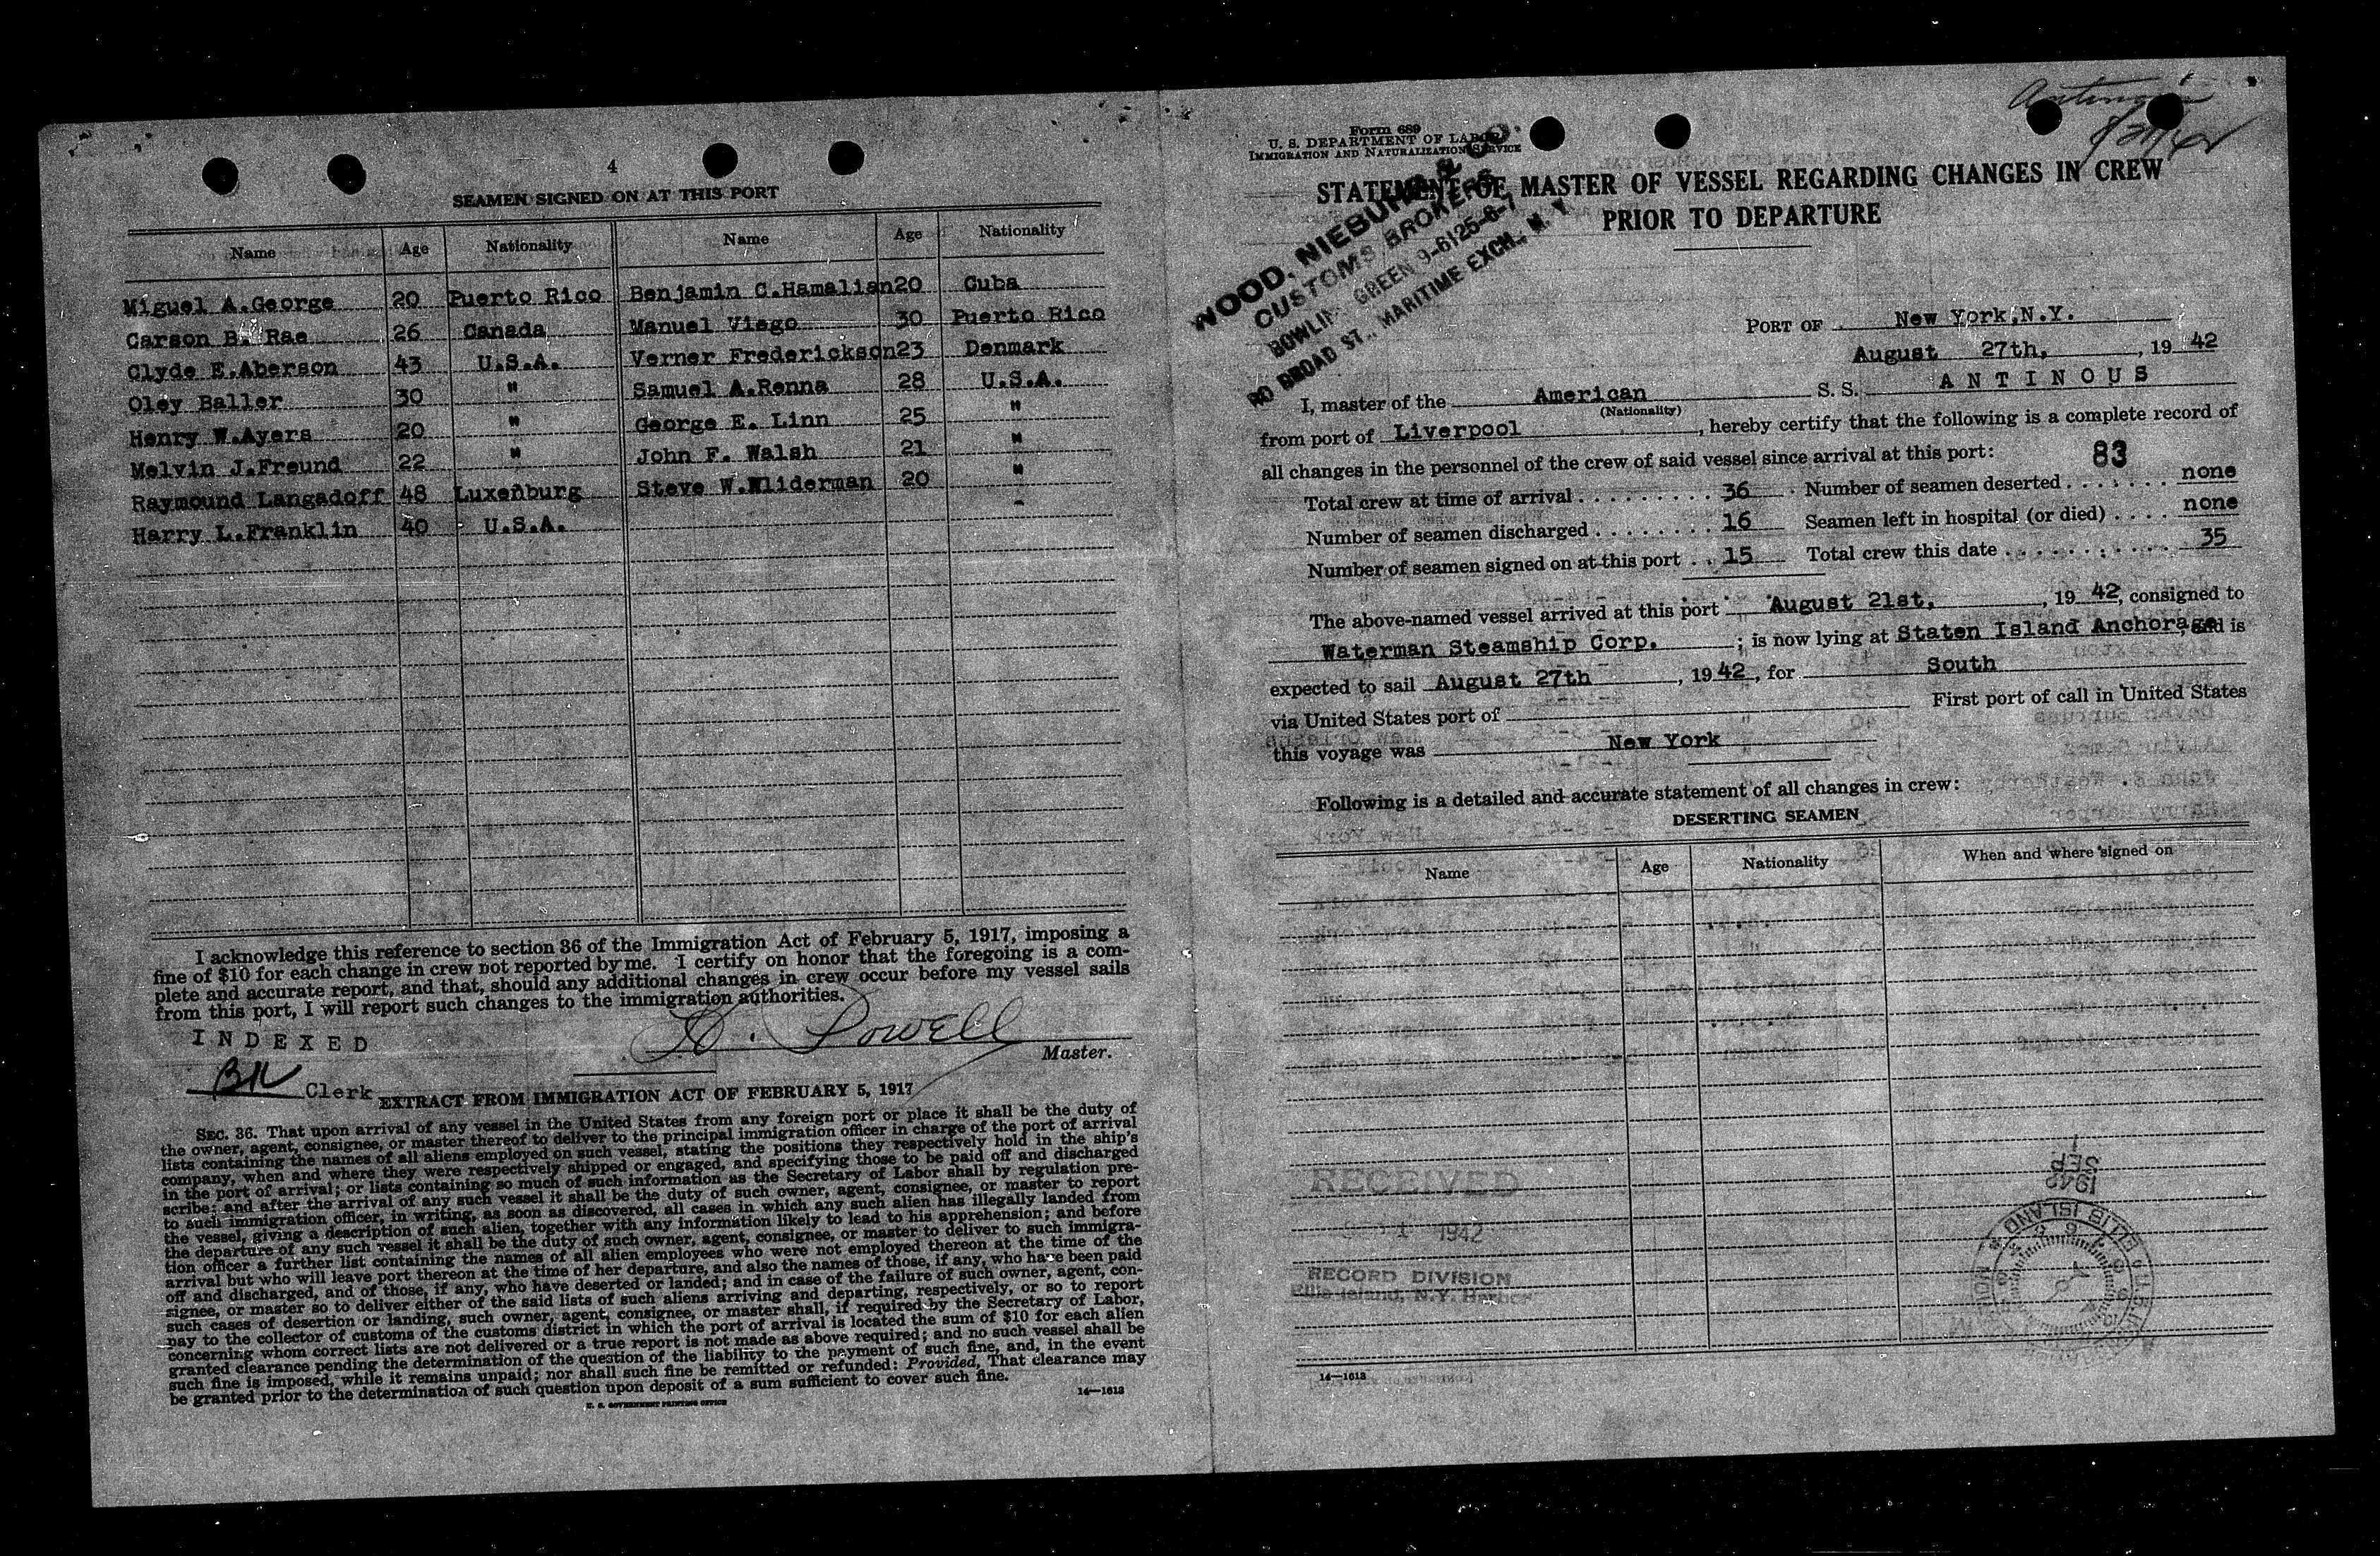 4
SEAMEN SIGNED ON AT THIS PORT
Name Age Nationality Name Age Nationality
Miguel A.George 20 Puerto Rico Benjamin C.Hamalian 20 Cuba
Carson B. Rae 26 Canada Manuel Viego 30 Puerto Rico
Clyde E.Aberson 43 U.S.A. Verner Frederickson 23 Denmark
Oley Baller 30 " Samuel A.Renna 28 U.S.A.
Henry W.Ayers 20 " George E. Linn 25 "
Melvin J.Freund 22 " John F. Walsh 21 "
Raymound Langadoff 48 Luxenburg Steve W.Wliderman 20 "
Harry L.Franklin 40 U.S.A.
I acknowledge this reference to section 36 of the Immigration Act of February 5, 1917, imposing a
fine of $10 for each change in crew not reported by me. I certify on honor that the foregoing is a com-
plete and accurate report, and that, should any additional changes in crew occur before my vessel sails
from this port, I will report such changes to the immigration authorities.
INDEXED
Powell
Master.
BK Clerk
EXTRACT FROM IMMIGRATION ACT OF FEBRUARY 5, 1917
SEC. 36. That upon arrival of any vessel in the United States from any foreign port or place it shall be the duty of
the owner, agent, consignee, or master thereof to deliver to the principal immigration officer in charge of the port of arrival
lists containing the names of all aliens employed on such vessel, stating the positions they respectively hold in the ship's
company, when and where they were respectively shipped or engaged, and specifying those to be paid off and discharged
in the port of arrival; or lists containing so much of such information as the Secretary of Labor shall by regulation pre-
scribe; and after the arrival of any such vessel it shall be the duty of such owner, agent, consignee, or master to report
to such immigration officer, in writing, as soon as discovered, all cases in which any such alien has illegally landed from
the vessel, giving a description of such alien, together with any information likely to lead to his apprehension; and before
the departure of any such vessel it shall be the duty of such owner, agent, consignee, or master to deliver to such immigra-
tion officer a further list containing the names of all alien employees who were not employed thereon at the time of the
arrival but who will leave port thereon at the time of her departure, and also the names of those, if any, who have been paid
off and discharged, and of those, if any, who have deserted or landed; and in case of the failure of such owner, agent, con-
signee, or master so to deliver either of the said lists of such aliens arriving and departing, respectively, or so to report
such cases of desertion or landing, such owner, agent, consignee, or master shall, if required by the Secretary of Labor,
pay to the collector of customs of the customs district in which the port of arrival is located the sum of $10 for each alien
concerning whom correct lists are not delivered or a true report is not made as above required; and no such vessel shall be
granted clearance pending the determination of the question of the liability to the payment of such fine, and, in the event
such fine is imposed, while it remains unpaid; nor shall such fine be remitted or refunded: Provided, That clearance may
be granted prior to the determination of such question upon deposit of a sum sufficient to cover such fine.
U. S. GOVERNMENT PRINTING OFFICE
14—1613
Antinous
Form 689
U. S. DEPARTMENT OF LABOR
IMMIGRATION AND NATURALIZATION SERVICE
STATEMENT OF MASTER OF VESSEL REGARDING CHANGES IN CREW
PRIOR TO DEPARTURE
WOOD, NIEBUHR & CO.
CUSTOMS BROKERS
BOWLING GREEN 9-6125-6-7
80 BROAD ST., MARITIME EXCH., N. Y.
PORT OF New York,N.Y.
August 27th, , 19 42
I, master of the American S. S. ANTINOUS
(Nationality)
from port of Liverpool , hereby certify that the following is a complete record of
all changes in the personnel of the crew of said vessel since arrival at this port: 83
Total crew at time of arrival 36 Number of seamen deserted none
Number of seamen discharged 16 Seamen left in hospital (or died) none
Number of seamen signed on at this port 15 Total crew this date 35
The above-named vessel arrived at this port August 21st, , 19 42, consigned to
Waterman Steamship Corp. ; is now lying at Staten Island Anchorage, and is
expected to sail August 27th , 19 42, for South
via United States port of First port of call in United States
this voyage was New York
Following is a detailed and accurate statement of all changes in crew:
DESERTING SEAMEN
Name Age Nationality When and where signed on
RECEIVED
1 1942
RECORD DIVISION
Ellis Island, N.Y. Harbor
1942
SEP
1
ELLIS ISLAND
14—1613